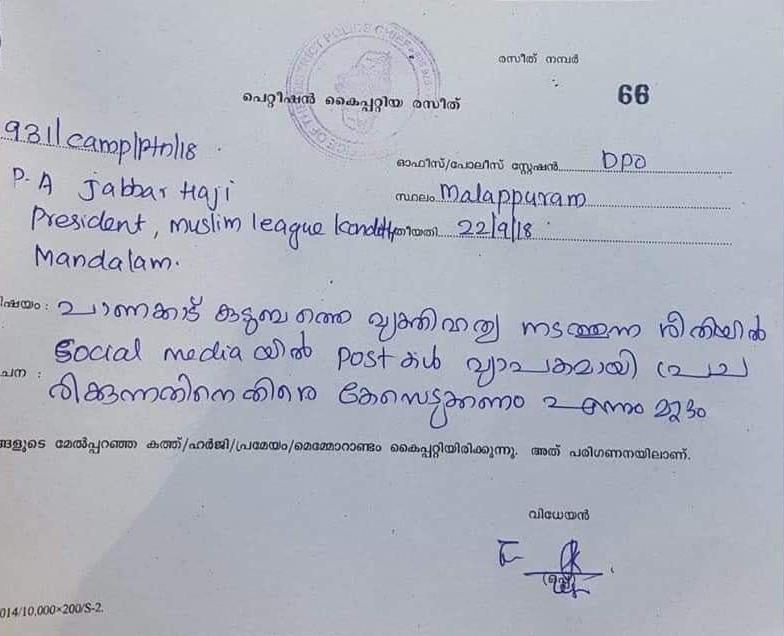 OFFICE OF THE DISTRICT POLICE CHIEF
രസീത് നമ്പർ
66
പെറ്റീഷൻ കൈപ്പറ്റിയ രസീത്
931/camp/ptn/18
ഓഫീസ്/പോലീസ് സ്റ്റേഷൻ DPO
P.A Jabbar Haji
സ്ഥലം Malappuram
President, muslim league
തീയതി 22/9/18
Mandalam.
വിഷയം : പാണക്കാട് കുടുബത്തെ വ്യക്തിഹത്യ നടത്തുന്ന രീതിയിൽ
Social media യിൽ Post കൾ വ്യാപകമായി പ്രച
രിക്കുന്നതിനെതിരെ കേസെടുക്കണം എന്നും മറ്റും
ങളുടെ മേൽപ്പറഞ്ഞ കത്ത്/ഹർജി/പ്രമേയം/മെമ്മോറാണ്ടം കൈപ്പറ്റിയിരിക്കുന്നു. അത് പരിഗണനയിലാണ്.
വിധേയൻ
(ഒപ്പ്)
014/10,000×200/S-2.